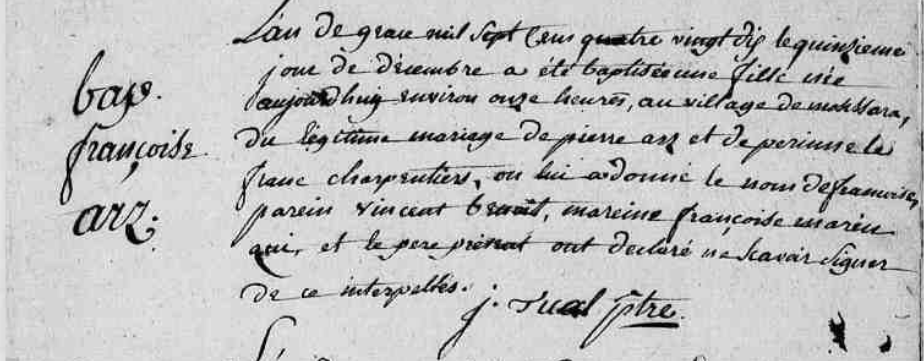 bap.
françoise
arz.
L'an de grace mil sept cens quatre vingt dix le quinzieme
jour de decembre a été baptisée une fille née
aujourdhuy environ onze heures, au village de
du légitime mariage de pierre arz et de perinne le
franc charpentiers, on lui a donné le nom de francoise,
parein vincent benoit, mareine françoise marin
qui, et le pere présent ont declaré ne scavoir signer
de ce interpellés. j. rual ptre.